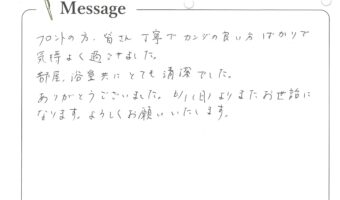 Message
フロントの方、皆さん 丁寧で カンジの良い方 ばかりで
気持よく過ごせました。
部屋、浴室共に とても 清潔でした。
ありがとうございました。6/1(日)よりまたお世話に
なります。よろしくお願いいたします。